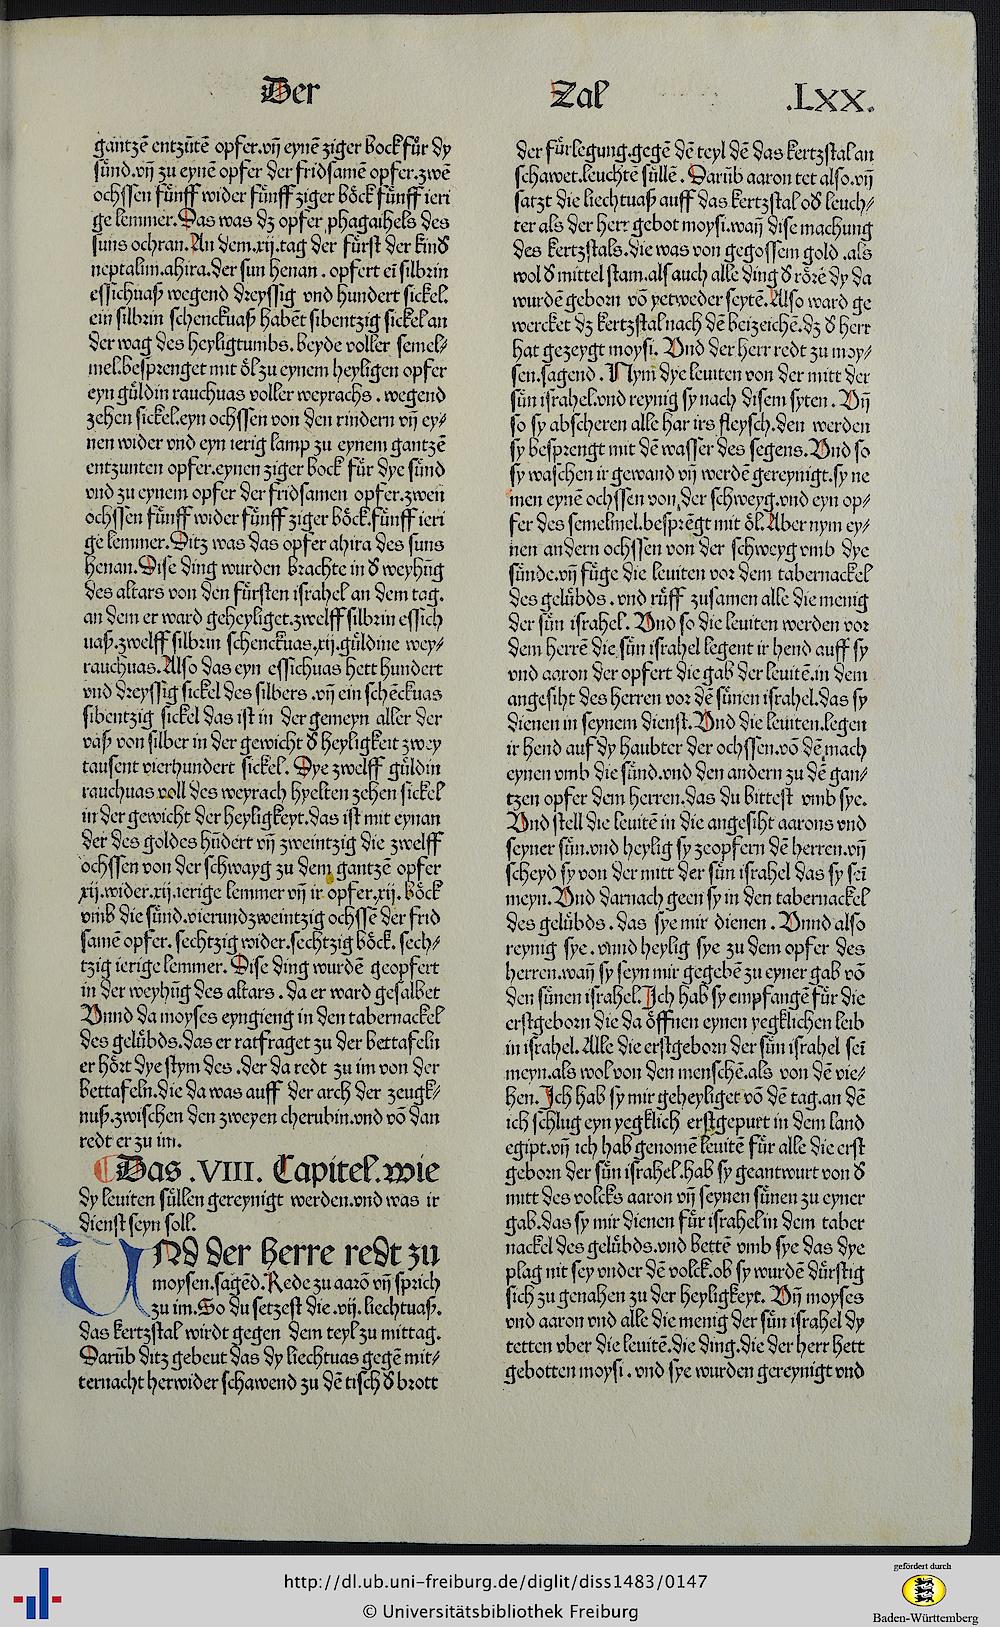 Der
Zal
.LXX.
gantzē entzūtē opfer.vn̄ eynē ziger bock fůr dy
sünd.vn̄ zu eynē opfer der fridsamē opfer.zwē
ochssen fünff wider fünff ziger böck fünff ieri
ge lemmer.Das was dz opfer phagaihels des
suns ochran.An dem.xij.tag der fürst der kind
neptalim.ahira.der sun henan.opfert eī silbrin
essichuaß wegend dreyssig vnd hundert sickel.
ein silbrin schenckuaß habēt sibentzig sickel an
der wag des heyligtumbs.beyde voller semel-
mel.besprenget mit öl zu eynem heyligen opfer
eyn güldin rauchuas voller weyrachs.wegend
zehen sickel.eyn ochssen von den rindern vn̄ ey-
nen wider vnd eyn ierig lamp zu eynem gantzē
entzunten opfer.eynen ziger bock für dye sünd
vnd zu eynem opfer der fridsamen opfer.zwen
ochssen fünff wider fünff ziger böck.fünff ieri
ge lemmer.Ditz was das opfer ahira des suns
henan.Dise ding wurden brachte in d weyhūg
des altars von den fürsten israhel an dem tag.
an dem er ward geheyliget.zwelff silbrin essich
uaß.zwelff silbrin schenckuas.xij.güldine wey-
rauchuas.Also das eyn essichuas hett hundert
vnd dreyssig sickel des silbers.vn̄ ein schēckuas
sibentzig sickel das ist in der gemeyn aller der
vaß von silber in der gewicht d heyligkeit zwey
tausent vierhundert sickel.Dye zwelff güldin
rauchuas voll des weyrach hyelten zehen sickel
in der gewicht der heyligkeyt.das ist mit eynan
der des goldes hūdert vn̄ zweintzig die zwelff
ochssen von der schwayg zu dem gantzē opfer
xij.wider.xij.ierige lemmer vn̄ ir opfer.xij.böck
vmb die sünd.vierundzweintzig ochssē der frid
samē opfer.sechtzig wider.sechtzig böck.sech-
tzig ierige lemmer.Dise ding wurdē geopfert
in der weyhūg des altars.da er ward gesalbet
Vnnd da moyses eyngieng in den tabernackel
des gelübds.das er ratfraget zu der bettafeln
er hört dye stym des.der da redt zu im von der
bettafeln.die da was auff der arch der zeugk-
nuß.zwischen den zweyen cherubin.vnd vō dan
redt er zu im.
Das .VIII. Capitel.wie
dy leuiten süllen gereynigt werden.vnd was ir
dienst seyn soll.
VNd der herre redt zu
moysen.sagēd.Rede zu aarō vn̄ sprich
zu im.So du setzest die.vij.liechtuaß.
das kertzstal wirdt gegen dem teyl zu mittag.
Darūb ditz gebeut das dy liechtuas gegē mit-
ternacht herwider schawend zu dē tisch d brott
der fürlegung.gegē dē teyl dē das kertzstal an
schawet.leuchtē süllē.Darūb aaron tet also.vn̄
satzt die liechtuaß auff das kertzstal od leuch-
ter als der herr gebot moysi.wan̄ dise machung
des kertzstals.die was von gegossem gold.als
wol d mittel stam.als auch alle ding d rörē dy da
wurdē geborn vō yetweder seytē.Also ward ge
wercket dz kertzstal nach dē beizeichē.dz d herr
hat gezeygt moysi.Vnd der herr redt zu moy-
sen.sagend.Nym dye leuiten von der mitt der
sün israhel.vnd reynig sy nach disem syten.Vn̄
so sy abscheren alle har irs fleysch.den werden
sy besprengt mit dē wasser des segens.Vnd so
sy waschen ir gewand vn̄ werdē gereynigt.sy ne
men eynē ochssen von der schweyg.vnd eyn op-
fer des semelmel.besprēgt mit öl.Aber nym ey-
nen andern ochssen von der schweyg vmb dye
sünde.vn̄ füge die leuiten vor dem tabernackel
des gelübds.vnd rüff zusamen alle die menig
der sün israhel.Vnd so die leuiten werden vor
dem herrē die sün israhel legent ir hend auff sy
vnd aaron der opfert die gab der leuitē.in dem
angesiht des herren vor dē sünen israhel.das sy
dienen in seynem dienst.Vnd die leuiten.legen
ir hend auf dy haubter der ochssen.vō dē mach
eynen vmb die sünd.vnd den andern zu dē gan-
tzen opfer dem herren.das du bittest vmb sye.
Vnd stell die leuitē in die angesiht aarons vnd
seyner sün.vnd heylig sy zeopfern dē herren.vn̄
scheyd sy von der mitt der sün israhel das sy seī
meyn.Vnd darnach geen sy in den tabernackel
des gelübds.das sye mir dienen.Vnnd also
reynig sye.vnnd heylig sye zu dem opfer des
herren.wan̄ sy seyn mir gegebē zu eyner gab vō
den sünen israhel.Ich hab sy empfangē für die
erstgeborn die da öffnen eynen yegklichen leib
in israhel.Alle die erstgeborn der sün israhel seī
meyn.als wol von den menschē.als von dē vie-
hen.Ich hab sy mir geheyliget vō dē tag.an dē
ich schlug eyn yegklich erstgepurt in dem land
egipt.vn̄ ich hab genomē leuitē für alle die erst
geborn der sün israhel.hab sy geantwurt von d
mitt des volcks aaron vn̄ seynen sünen zu eyner
gab.das sy mir dienen für israhel in dem taber
nackel des gelübds.vnd bettē vmb sye das dye
plag nit sey vnder dē volck.ob sy wurdē dürstig
sich zu genahen zu der heyligkeyt.Vn̄ moyses
vnd aaron vnd alle die menig der sün israhel dy
tetten vber die leuitē.die ding.die der herr hett
gebotten moysi.vnd sye wurden gereynigt vnd
http://dl.ub.uni-freiburg.de/diglit/diss1483/0147
© Universitätsbibliothek Freiburg
gefördert durch
Baden-Württemberg